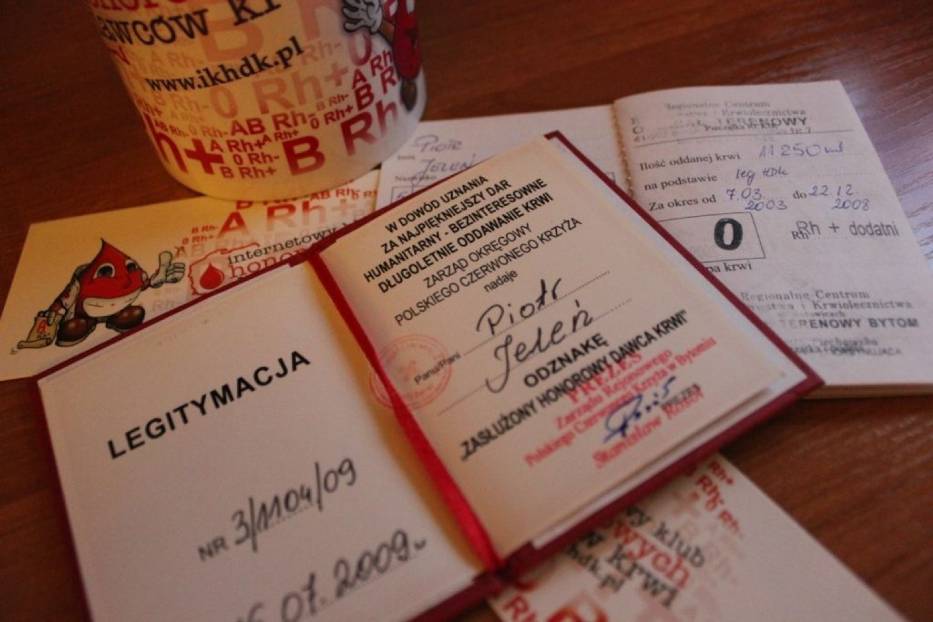 wców kr
www.ikhdk.pl
A Rh+
0 Rh+
B Rh-
0 Rh-
AB Rh-
B Rh+
internetowy
honor
Piotr
Jeleń
Regionalne Centrum
i Krwiolecznictwa
TERENOWY
Ilość oddanej krwi 11250 ml
na podstawie leg HDK
Za okres od 7.03.2003 do 22.12.2008
0
Rh Rh + dodatni
pa krwi
Regionalne Centrum
i Krwiolecznictwa
TERENOWY BYTOM
LEGITYMACJA
NR 3/1104/09
07.2009
W DOWÓD UZNANIA
ZA NAJPIĘKNIEJSZY DAR
HUMANITARNY - BEZINTERESOWNE
DŁUGOLETNIE ODDAWANIE KRWI
ZARZĄD OKRĘGOWY
POLSKIEGO CZERWONEGO KRZYŻA
nadaje
Panu/Pani Piotr
Jeleń
ODZNAKĘ
„ZASŁUŻONY HONOROWY DAWCA KRWI"
PREZES
Zarządu Rejonowego
Polskiego Czerwonego Krzyża w Bytomiu
PREZES
Stanisław
wy klub
wych
w krwi
hdk.pl